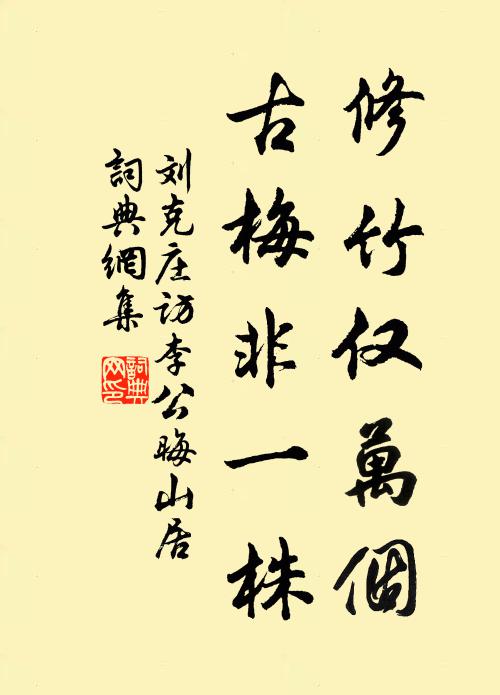 修竹仅萬個
古梅非一株
刘克庄访李公晦山居
詞典網集
詞典网印